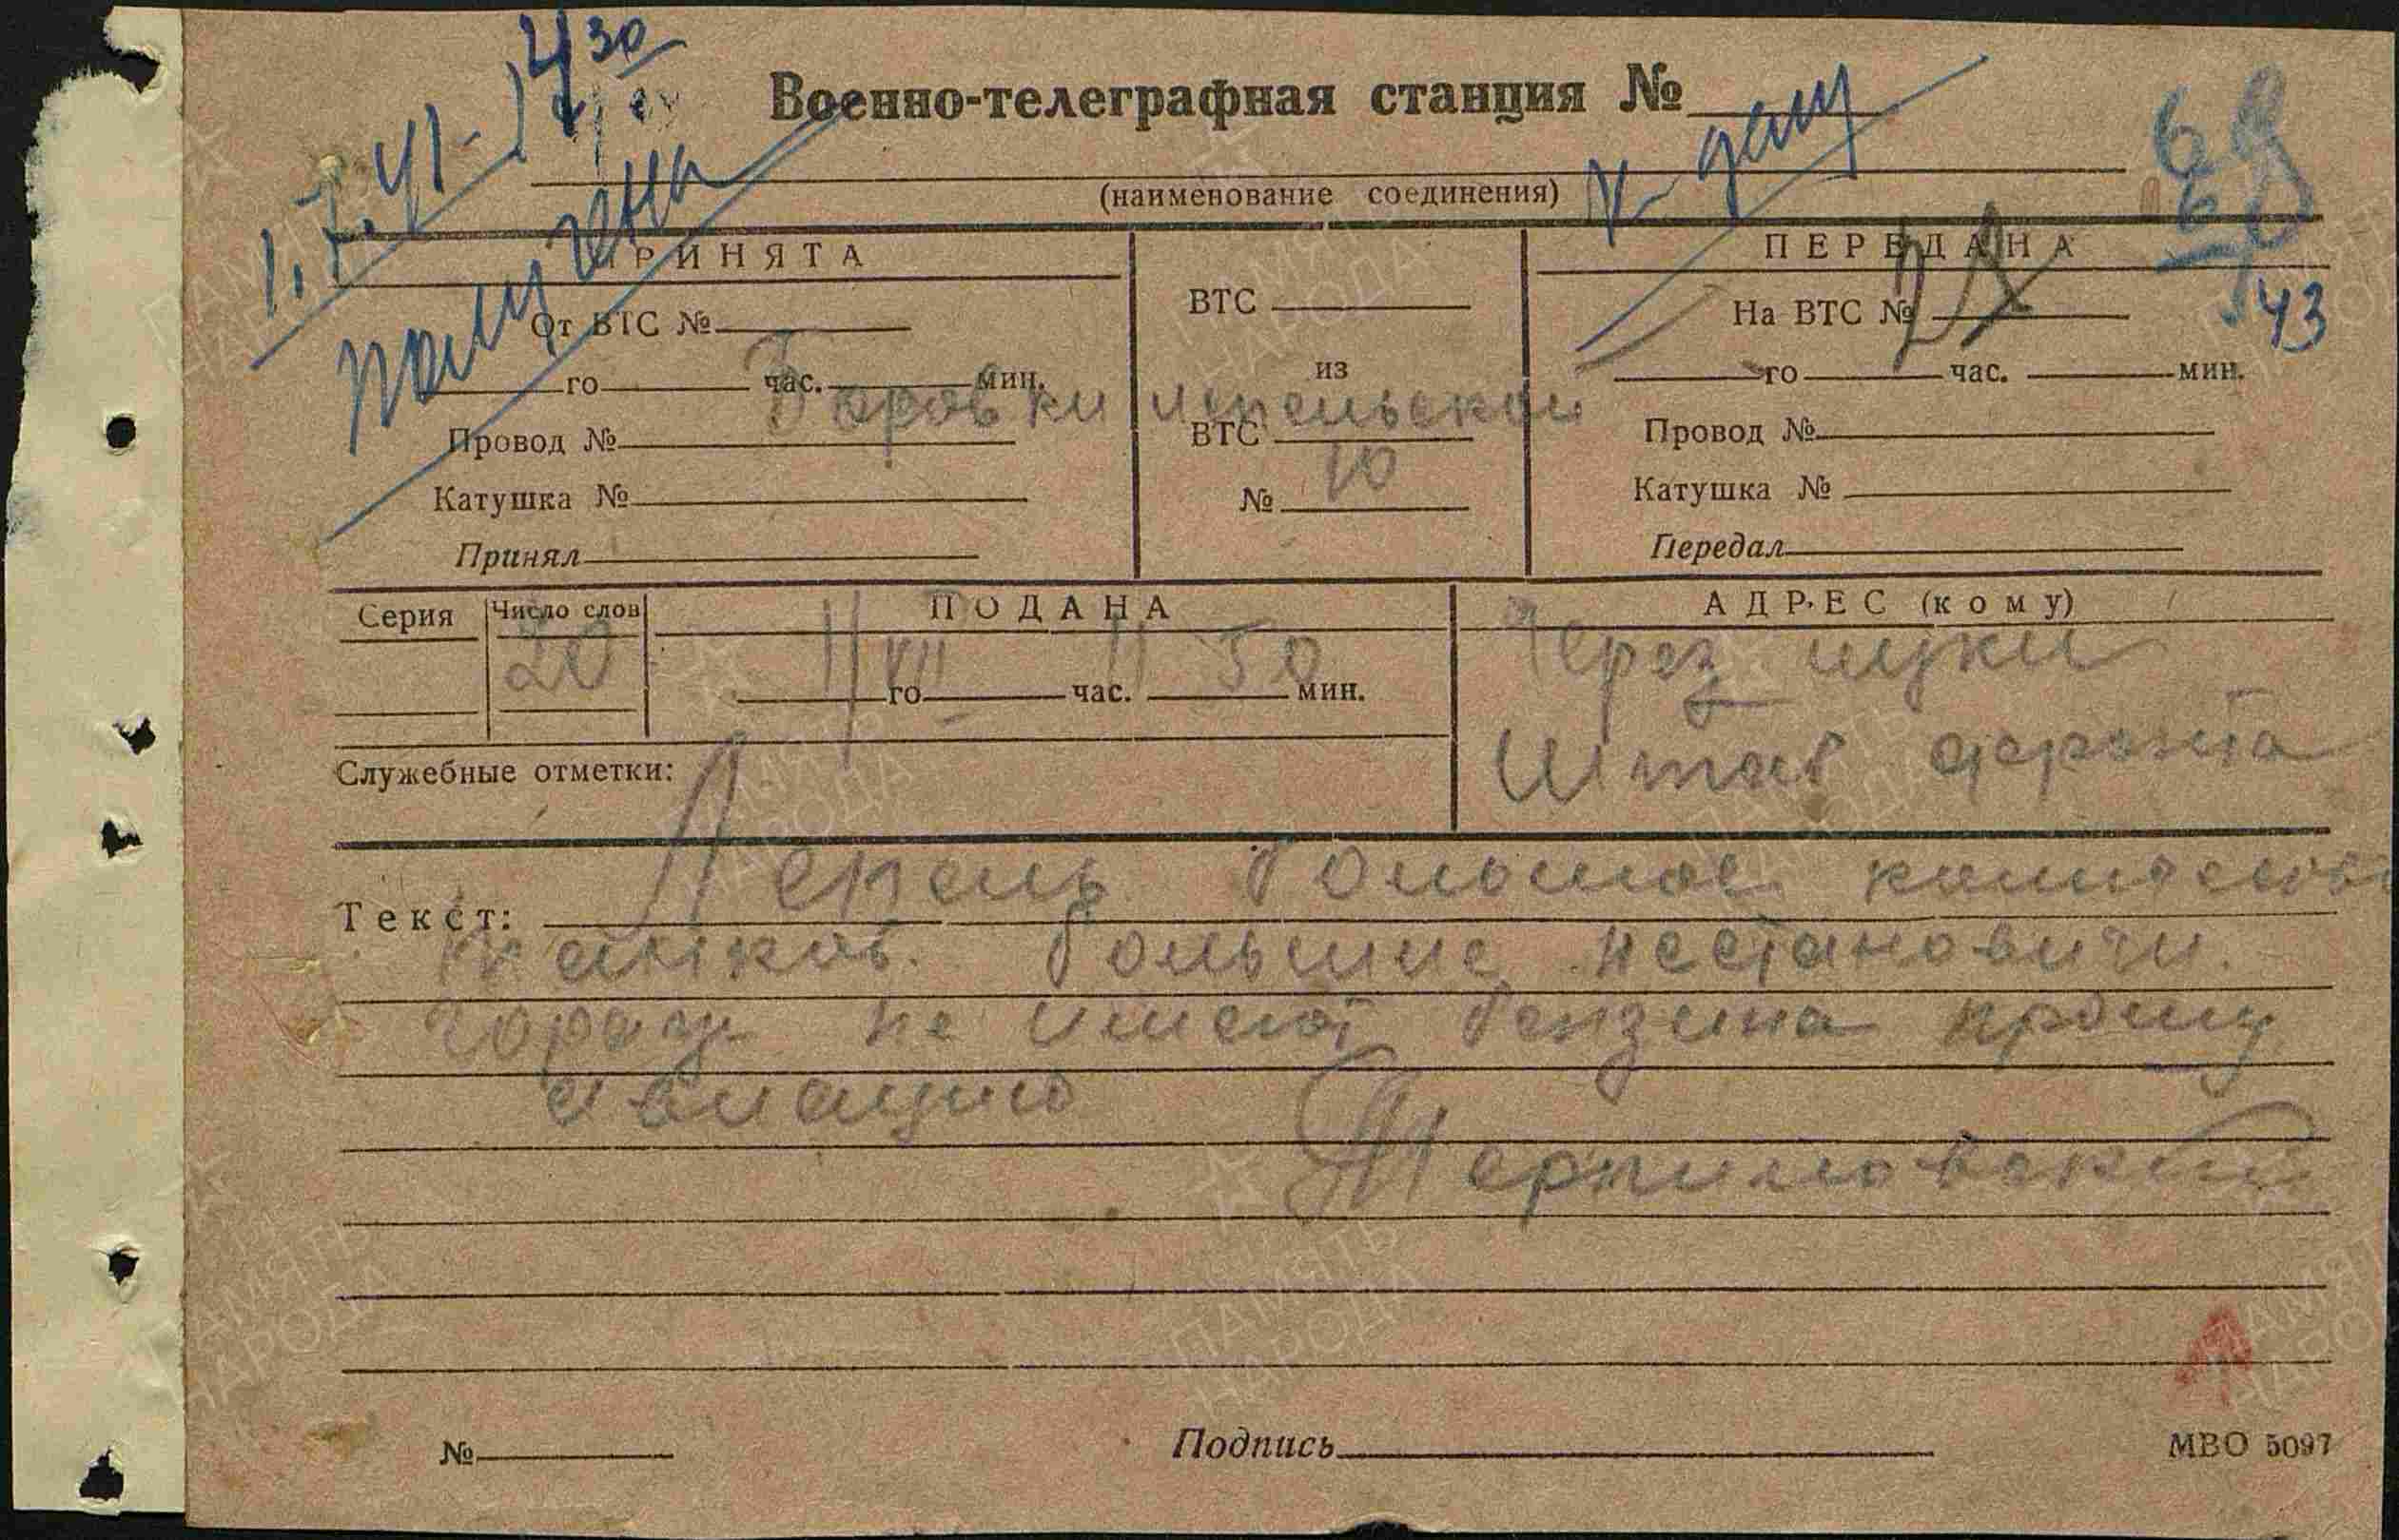 1.7.41. 14 30
Военно-телеграфная станция №
получена
к делу
(наименование соединения)
68
43
ПРИНЯТА
ПЕРЕДАНА
От ВТС №
ВТС
На ВТС №
го час. мин.
из
го час. мин.
Боровки лепельской
Провод №
ВТС
Провод №
Катушка №
№ 10
Катушка №
Принял
Передал
Серия
Число слов
ПОДАНА
АДРЕС (кому)
20
1/VII го 11 час. 50 мин.
Через
Штаб фронта
Служебные отметки:
Текст: Лепель большое количество
танков. Большие
не имеет бензина
авиацию
Терпиловский
№
Подпись
МВО 5097